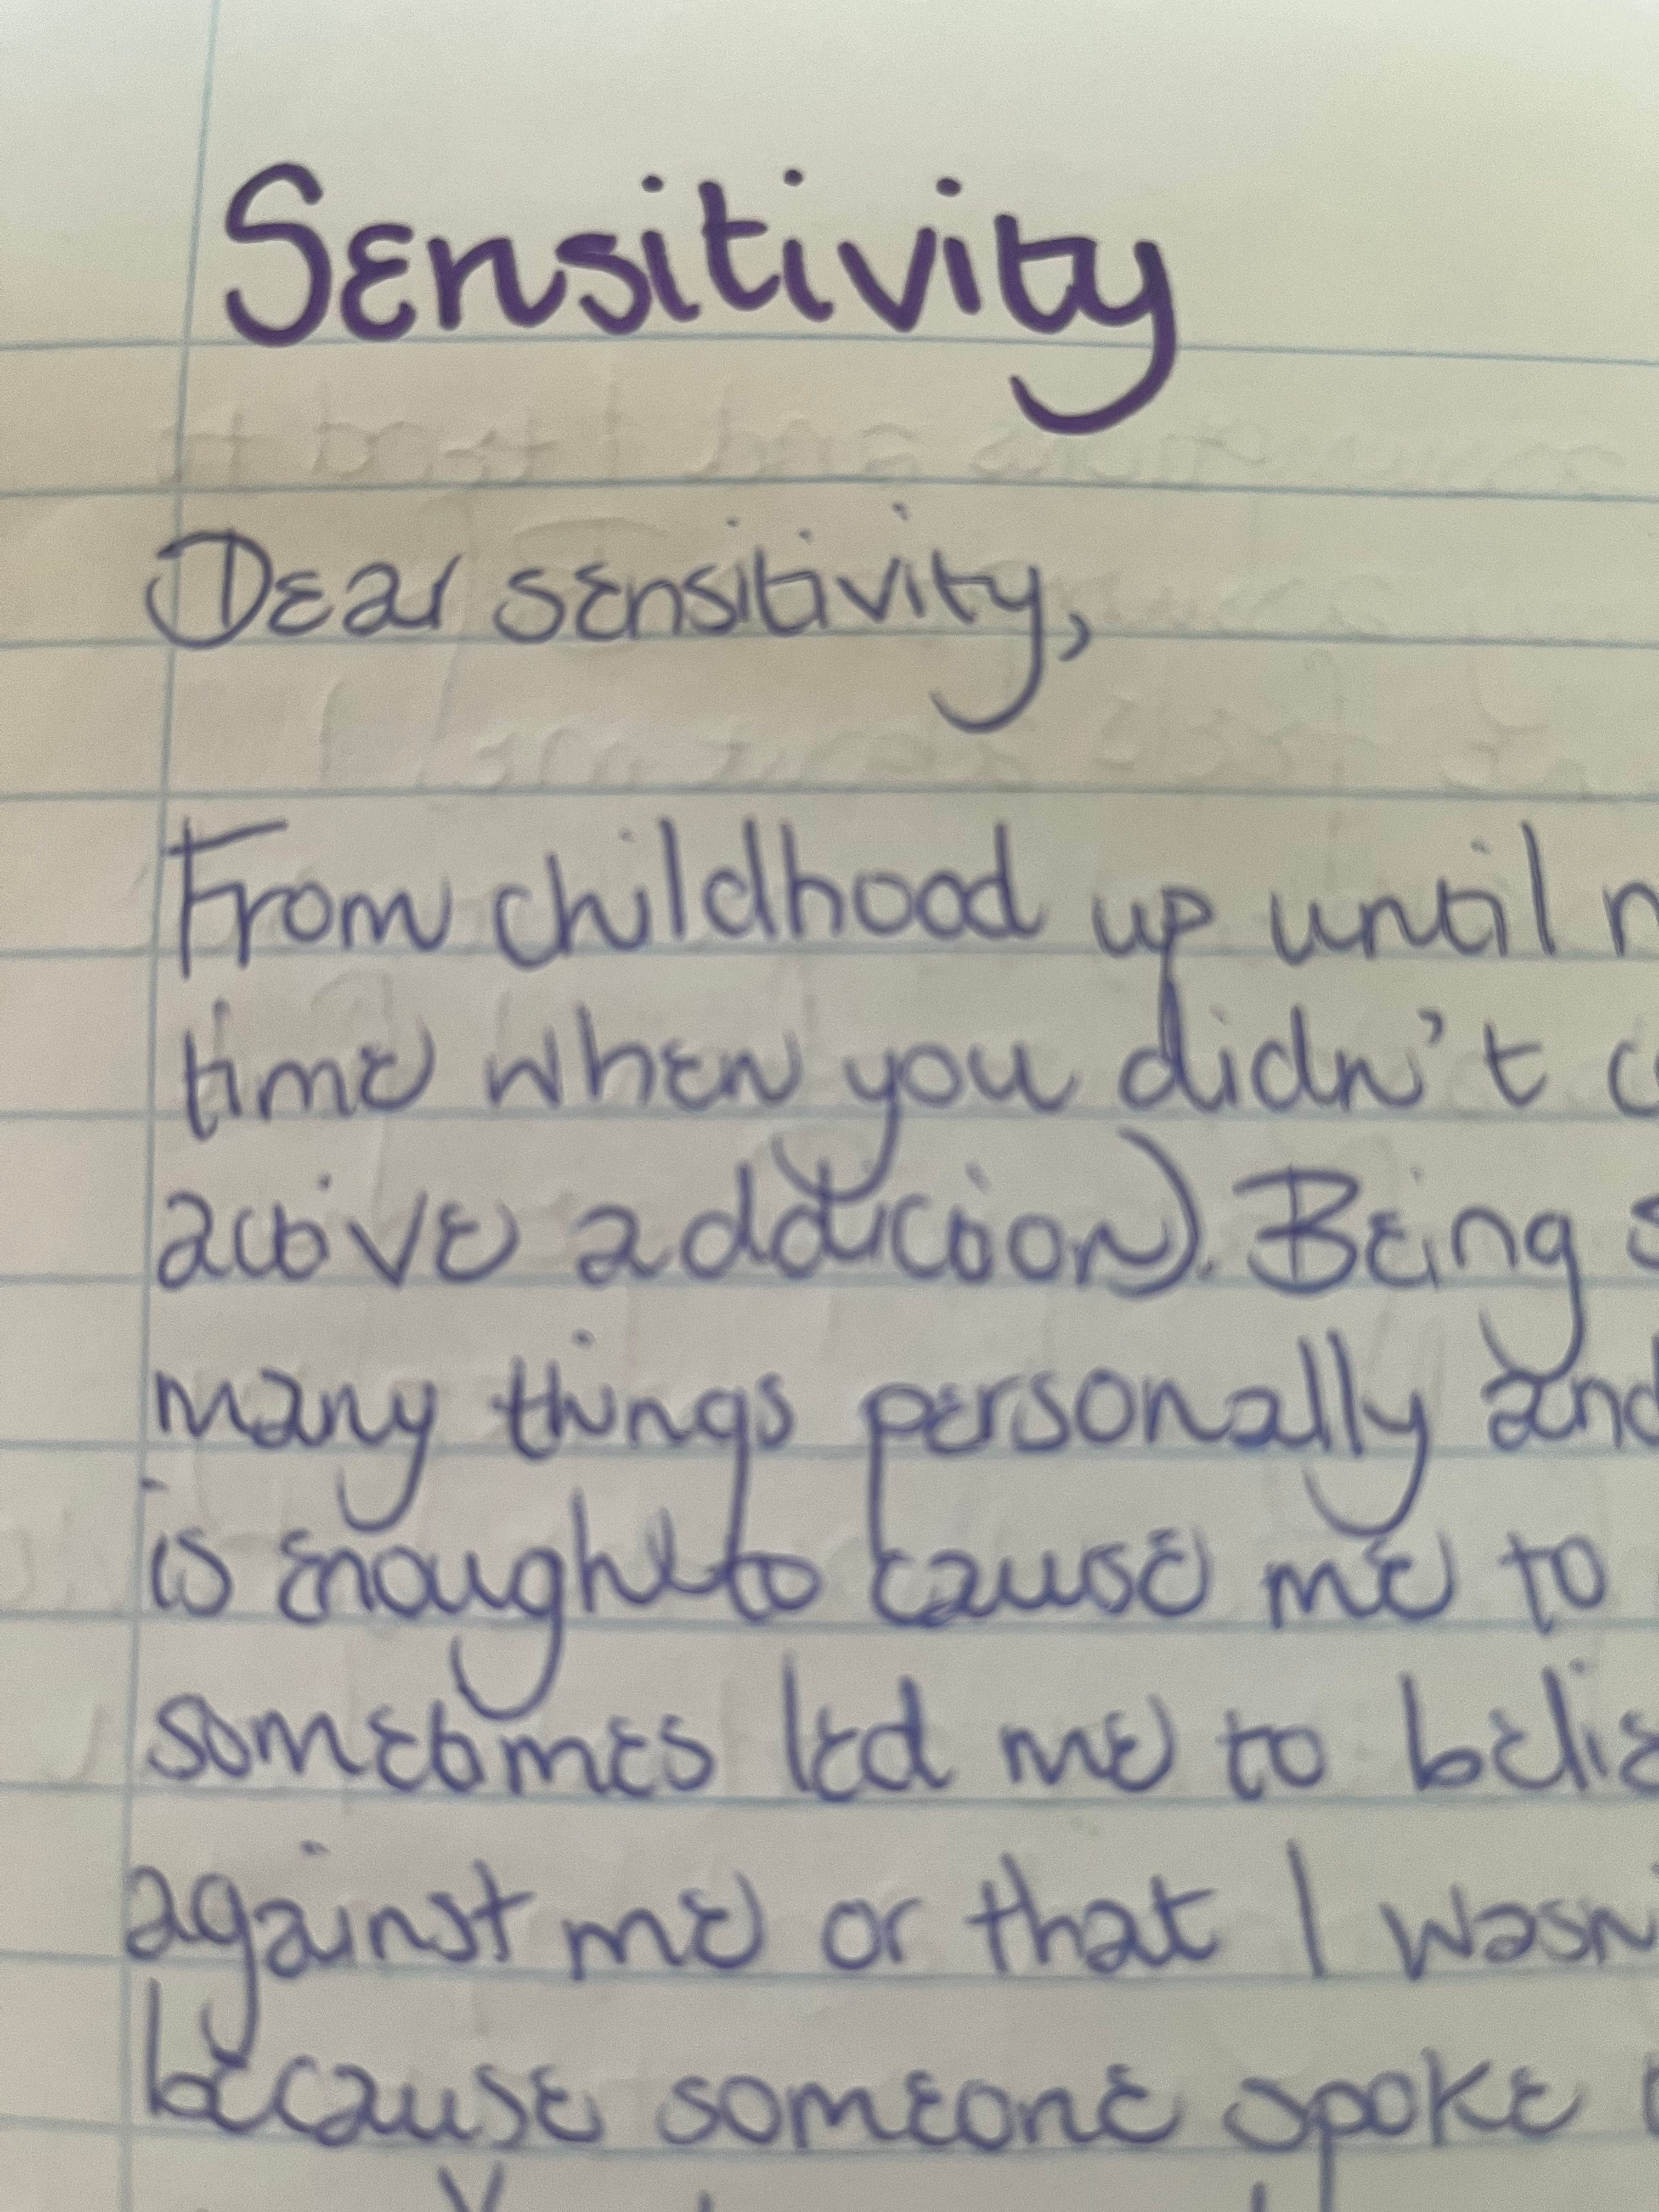 Sensitivity
Dear sensitivity,
From childhood up until
time when you didn't
active addiction). Being
many things personally and
is enough to cause me to
sometimes led me to
against me or that I
because someone spoke